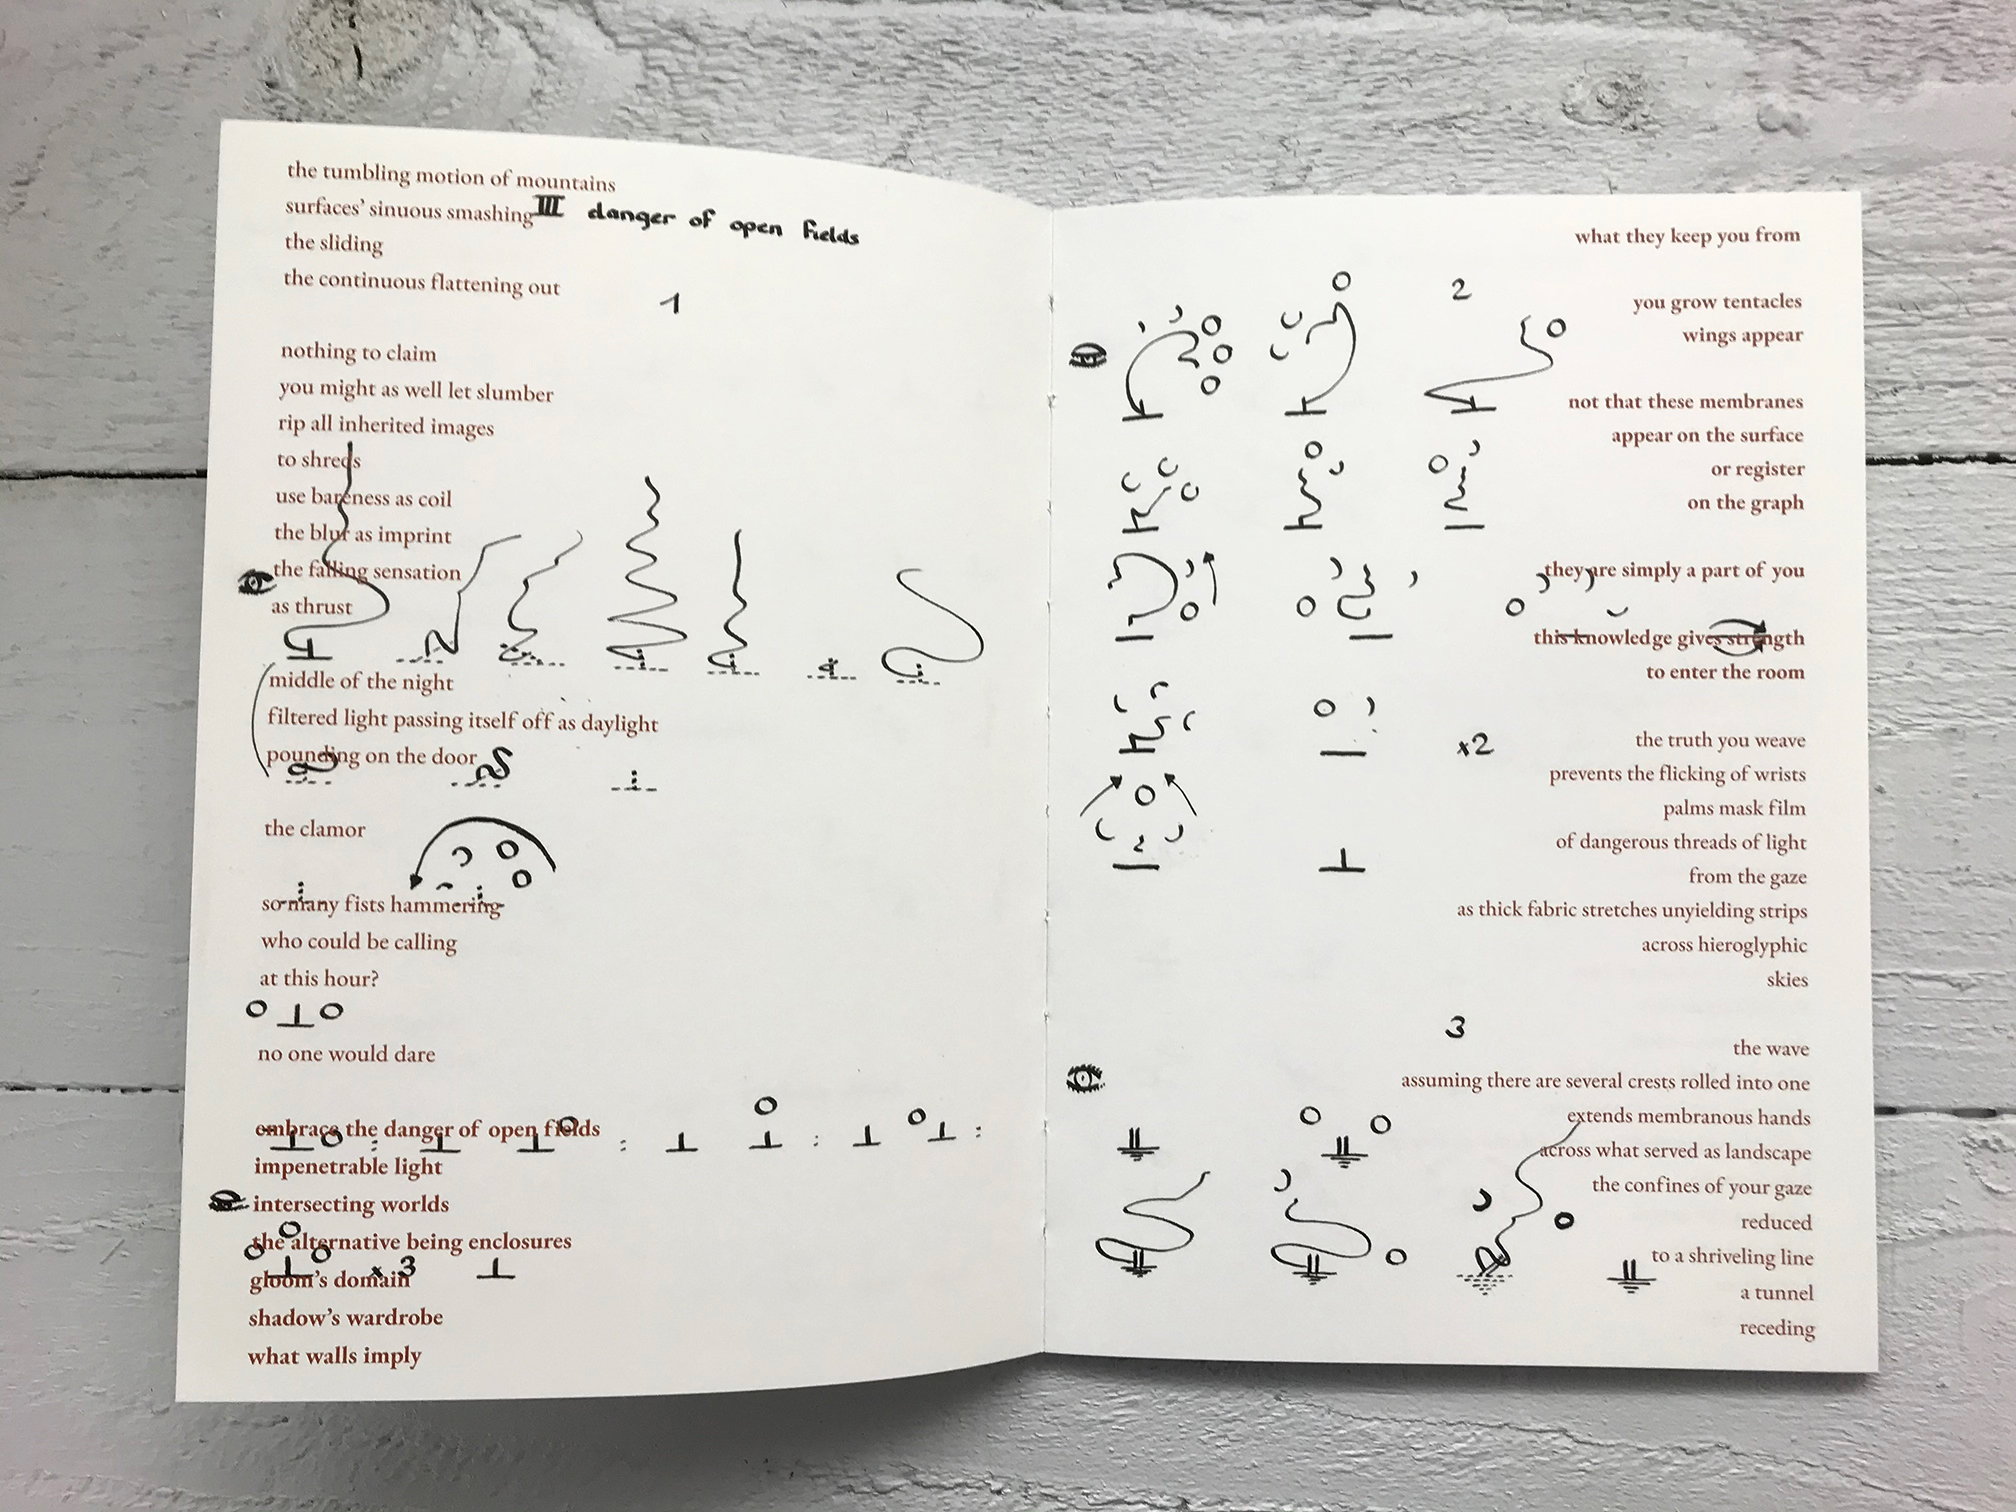 the tumbling motion of mountains
surfaces’ sinuous smashing
III danger of open fields
the sliding
the continuous flattening out
1
nothing to claim
you might as well let slumber
rip all inherited images
to shreds
use bareness as coil
the blur as imprint
the falling sensation
as thrust
middle of the night
filtered light passing itself off as daylight
pounding on the door
the clamor
so many fists hammering
who could be calling
at this hour?
no one would dare
embrace the danger of open fields
impenetrable light
intersecting worlds
the alternative being enclosures
x3
gloom’s domain
shadow’s wardrobe
what walls imply
what they keep you from
2
you grow tentacles
wings appear
not that these membranes
appear on the surface
or register
on the graph
they are simply a part of you
this knowledge gives strength
to enter the room
x2
the truth you weave
prevents the flicking of wrists
palms mask film
of dangerous threads of light
from the gaze
as thick fabric stretches unyielding strips
across hieroglyphic
skies
3
the wave
assuming there are several crests rolled into one
extends membranous hands
across what served as landscape
the confines of your gaze
reduced
to a shriveling line
a tunnel
receding